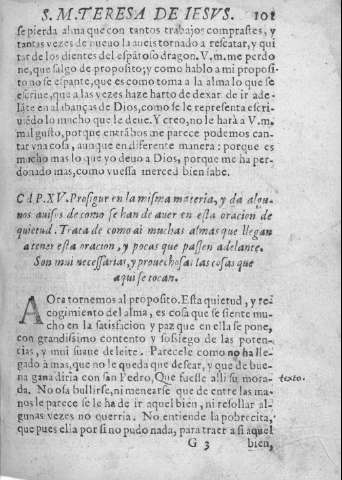 S. M. TERESA DE IESVS. 101
se pierda alma que con tantos trabajos comprastes, y
tantas vezes de nueuo la aueis tornado a rescatar, y qui
tar de los dientes del espãtoso dragon. V.m. me perdo
ne, que salgo de proposito; y como hablo a mi proposi
to no se espante, que es como toma a la alma lo que se
escriue, que a las vezes haze harto de dexar de ir ade-
lãte en alabanças de Dios, como se le representa escri-
uiẽdo lo mucho que le deue. Y creo, no le harà a V.m.
mal gusto, porque entrãbos me parece podemos can-
tar vna cosa, aunque en diferente manera: porque es
mucho mas lo que yo deuo a Dios, porque me ha per-
donado mas, como vuessa merced bien sabe.
CAP. XV. Prosigue en la misma materia, y da algu-
nos auisos de como se han de auer en esta oracion de
quietud. Trata de como ai muchas almas que llegan
a tener esta oracion, y pocas que passen adelante.
Son mui necessarias, y prouechosas las cosas que
aqui se tocan.
AOra tornemos al proposito. Esta quietud, y re-
cogimiento del alma, es cosa que se siente mu-
cho en la satisfacion y paz que en ella se pone,
con grandissimo contento y sossiego de las poten-
cias, y mui suaue deleite. Parecele como no ha lle-
gado a mas, que no le queda que desear, y que de bue-
na gana diria con san Pedro, Que fuesse alli su mora-
da. No osa bullirse, ni menearse que de entre las ma-
nos le parece se le ha de ir aquel bien, ni resollar al-
gunas vezes no querria. No entiende la pobrecita,
que pues ella por si no pudo nada, para traer a si aquel
texto.
G 3 bien,